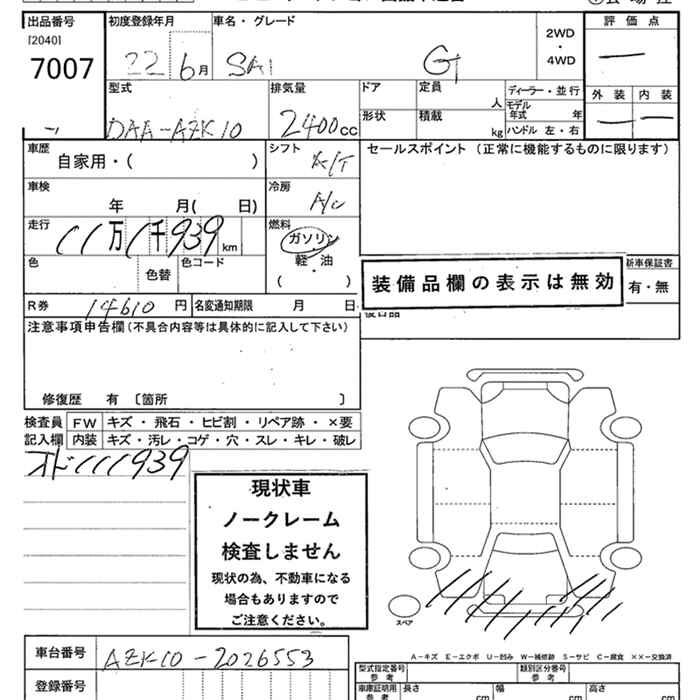 出品番号 初度登録年月 車名・グレード 評価点
[2040]
7007 22 6月 SAI G 2WD・4WD 一
型式 排気量 ドア 定員 人 ディーラー・並行 外装 内装
DAA-AZK10 2400cc 形状 積載 kg モデル年式 年 ハンドル 左・右 一 一
車歴 シフト セールスポイント(正常に機能するものに限ります)
自家用・( ) A/T
車検 冷房
年 月( 日) A/C
走行 燃料
11万1千939km ガソリン
色 色替 色コード 軽・油
( )
装備品欄の表示は無効
新車保証書
有・無
R券 14610円 名変通知期限 月 日
注意事項申告欄(不具合内容等は具体的に記入して下さい)
修復歴 有〔箇所 〕
検査員 FW キズ・飛石・ヒビ割・リペア跡・×要
記入欄 内装 キズ・汚レ・コゲ・穴・スレ・キレ・破レ
オド111939
現状車
ノークレーム
検査しません
現状の為、不動車になる
場合もありますので
ご注意ください。
スペア
A-キズ E-エクボ U-凹み W-補修跡 S-サビ C-腐食 ××-交換済
車台番号 AZK10-2026553
型式指定番号 参考 類別区分番号 参考
登録番号
車庫証明用 参考 長さ cm 幅 cm 高さ cm